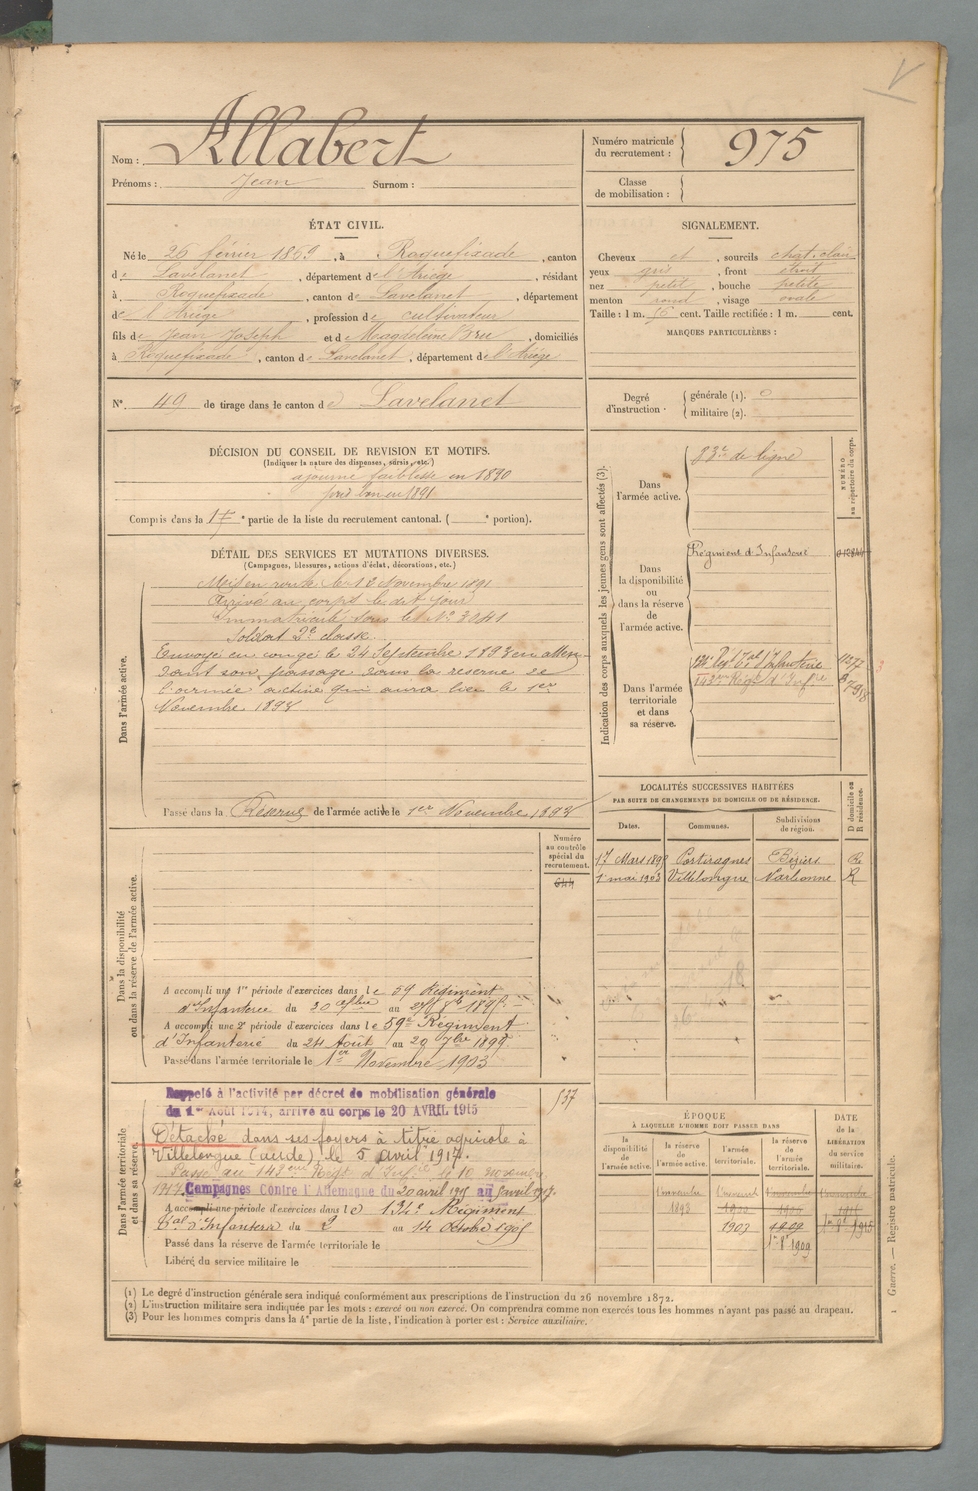 Nom : Allabert
Prénoms : Jean Surnom :
Numéro matricule du recrutement : 975
Classe de mobilisation :
ÉTAT CIVIL.
Né le 26 février 1869, à Roquefixade, canton
de Lavelanet, département de l'Ariège, résidant
à Roquefixade, canton de Lavelanet, département
de l'Ariège, profession de cultivateur
fils de Jean Joseph et de Magdeleine Bru, domiciliés
à Roquefixade, canton de Lavelanet, département de l'Ariège
SIGNALEMENT.
Cheveux et, sourcils chat. clair
yeux gris, front étroit
nez petit, bouche petite
menton rond, visage ovale
Taille : 1 m. 56 cent. Taille rectifiée : 1 m. cent.
MARQUES PARTICULIÈRES :
N° 49 de tirage dans le canton de Lavelanet
Degré d'instruction : générale (1). 0
militaire (2).
DÉCISION DU CONSEIL DE REVISION ET MOTIFS.
(Indiquer la nature des dispenses, sursis, etc.)
ajourné faiblesse en 1890
bon en 1891
Compris dans la 1e partie de la liste du recrutement cantonal. ( e portion).
DÉTAIL DES SERVICES ET MUTATIONS DIVERSES.
(Campagnes, blessures, actions d'éclat, décorations, etc.)
Dans l'armée active.
Mis en route le 13 Novembre 1891
Arrivé au corps le dit jour
Immatriculé sous le N° 3041
Soldat 2e classe
Envoyé en congé le 24 Septembre 1893 en atten-
dant son passage dans la réserve de
l'armée active qui aura lieu le 1er
Novembre 1893
Passé dans la Réserve de l'armée active le 1er Novembre 1893
Indication des corps auxquels les jeunes gens sont affectés (3).
NUMÉRO au répertoire du corps.
Dans l'armée active.
83e de ligne
Dans la disponibilité ou dans la réserve de l'armée active.
Régiment d'Infanterie
Dans l'armée territoriale et dans sa réserve.
134e Régt Tal d'Infanterie
143eme Régt d'Infrie
LOCALITÉS SUCCESSIVES HABITÉES
PAR SUITE DE CHANGEMENTS DE DOMICILE OU DE RÉSIDENCE.
Dates. Communes. Subdivisions de région. D domicile ou R résidence.
17 Mars 1898 Portiragnes Béziers R
1er mai 1903 Villelongue Narbonne R
Dans la disponibilité ou dans la réserve de l'armée active.
Numéro au contrôle spécial du recrutement.
644
A accompli une 1re période d'exercices dans le 59 Régiment
d'Infanterie du 30 au 1895
A accompli une 2e période d'exercices dans le 59e Régiment
d'Infanterie du 24 Août au 20 7bre 1899
Passé dans l'armée territoriale le 1er Novembre 1903
Dans l'armée territoriale et dans sa réserve.
Rappelé à l'activité par décret de mobilisation générale
du 1er Août 1914, arrive au corps le 20 AVRIL 1915
537
Détaché dans ses foyers à titre agricole à
Villelongue (aude), le 5 avril 1917.
Passé au 143eme Régt d'Infie le 10 novembre
1917. Campagnes Contre l'Allemagne du 20 avril 1915 au 5 avril 1917.
A accompli une période d'exercices dans le 134e Régiment
Tal d'Infanterie du 2 au 14 Octobre 1905
Passé dans la réserve de l'armée territoriale le
Libéré du service militaire le
ÉPOQUE
À LAQUELLE L'HOMME DOIT PASSER DANS
la disponibilité de l'armée active. la réserve de l'armée active. l'armée territoriale. la réserve de l'armée territoriale. DATE de la LIBÉRATION du service militaire.
1 novembre 1893
1 novembre 1900
1903
1909
1er 8bre 1909
1er 8bre 1915
(1) Le degré d'instruction générale sera indiqué conformément aux prescriptions de l'instruction du 26 novembre 1872.
(2) L'instruction militaire sera indiquée par les mots : exercé ou non exercé. On comprendra comme non exercés tous les hommes n'ayant pas passé au drapeau.
(3) Pour les hommes compris dans la 4e partie de la liste, l'indication à porter est : Service auxiliaire.
1 Guerre. — Registre matricule.